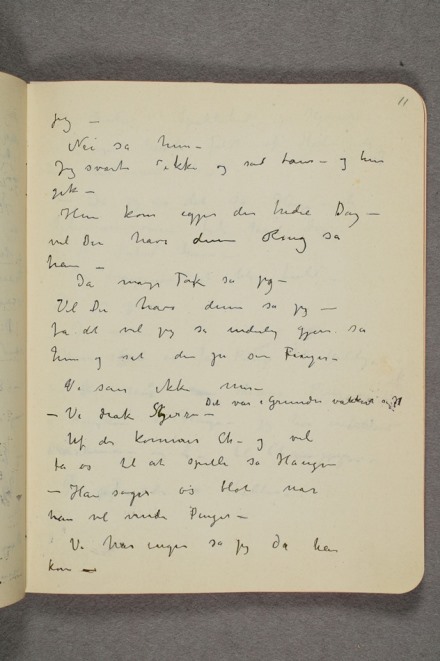 11
jeg —
Nei sa hun —
Jeg svarte ikke og sad taus — og hun
gik —
Hun kom igjen den tredie Dag —
vil De have denne Ring sa
han —
Ja mange Tak sa jeg —
Vil De have denne sa jeg —
Ja det vil jeg sa inderlig gjerne sa
hun og sat den på sin Finger —
Vi sam ikke mere
Det var i Grunden vakkert
— Vi drak
Uf der kommer Ch — og vil
fa os til at spille sa Haugen
— Han søger os blot når
han vil vinde Penger —
Vi har ingen sa jeg da han
kom —